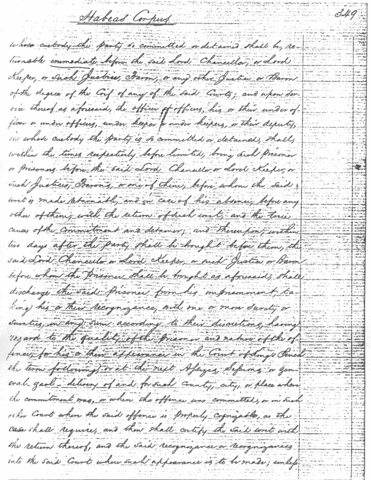 Habeas Corpus 349
whose custody the party is so committed or detained shall be re=
turnable immediate before the said Lord Chancellor, or Lord
Keeper, or such Justice, Baron, or any other Justice or Baron
of the degree of the Coif of any of the said Courts; and upon ser-
vice thereof as aforesaid, the officer or officers, his or their under of-
ficer or under officers, under keeper or under keepers, or their deputy,
in whose custody the party is so committed or detained, shall,
within the times respectively before limited, bring such Prisoner
or prisoners before the said Lord Chancellor or Lord Keeper, or
such Justices, Barons, or one of them, before whom the said
writ is made returnable, and in case of his absence, before any
other of them, with the return of such writ, and the true
causes of the commitment and detainer; and thereupon, within
two days after the Party shall be brought before them, the
said Lord Chancellor or Lord Keeper, or such Justice or Baron
before whom the Prisoner shall be brought as aforesaid, shall
discharge the said Prisoner from his imprisonment, ta-
king his or their recognizance, with one or more Surety or
Sureties, in any Sum according to their discretions, having
regard to the quality of the Prisoner and nature of the of-
fence, for his or their appearance in the Court of King's Bench
the term following, or at the next Assizes, Sessions, or gen-
eral gaol-delivery of and for such County, city, or place where
the commitment was, or where the offence was committed, or in such
other Court where the said offence is properly cognizable, as the
case shall require, and then shall certify the said writ with
the return thereof, and the said recognizance or recognizances
into the said Court where such appearance is to be made; unless